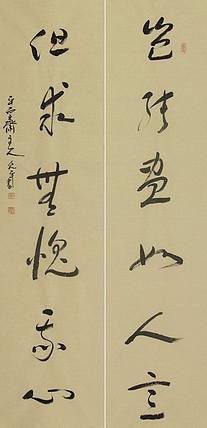 岂能尽如人意
但求無愧我心